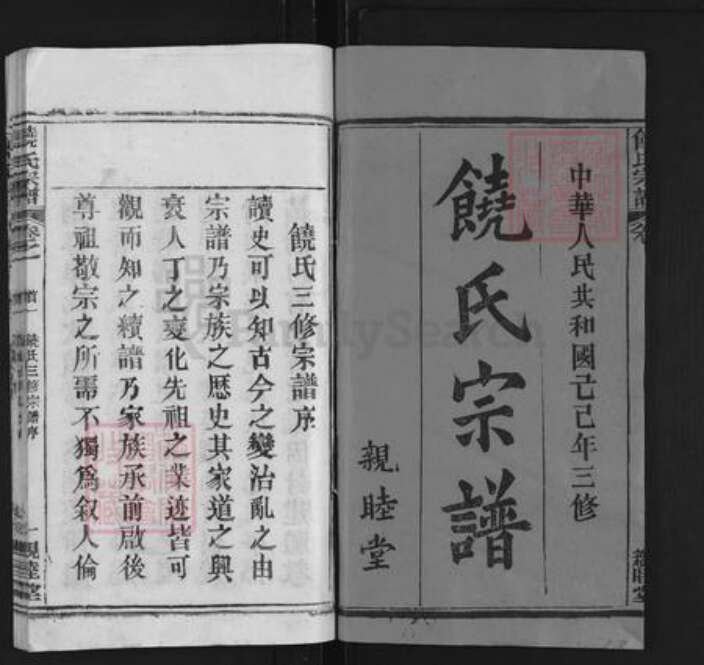 中華人民共和國己巳年三修
饒氏宗譜
親睦堂
饒氏三修宗譜序
讀史可以知古今之變治亂之由
宗譜乃宗族之歷史其家道之興
衰人丁之變化先祖之業迹皆可
觀而知之續譜乃家族承前啟後
尊祖敬宗之所需不獨爲叙人倫
饒氏宗譜
卷之一
饒氏三修宗譜序
一親睦堂
FamilySearch